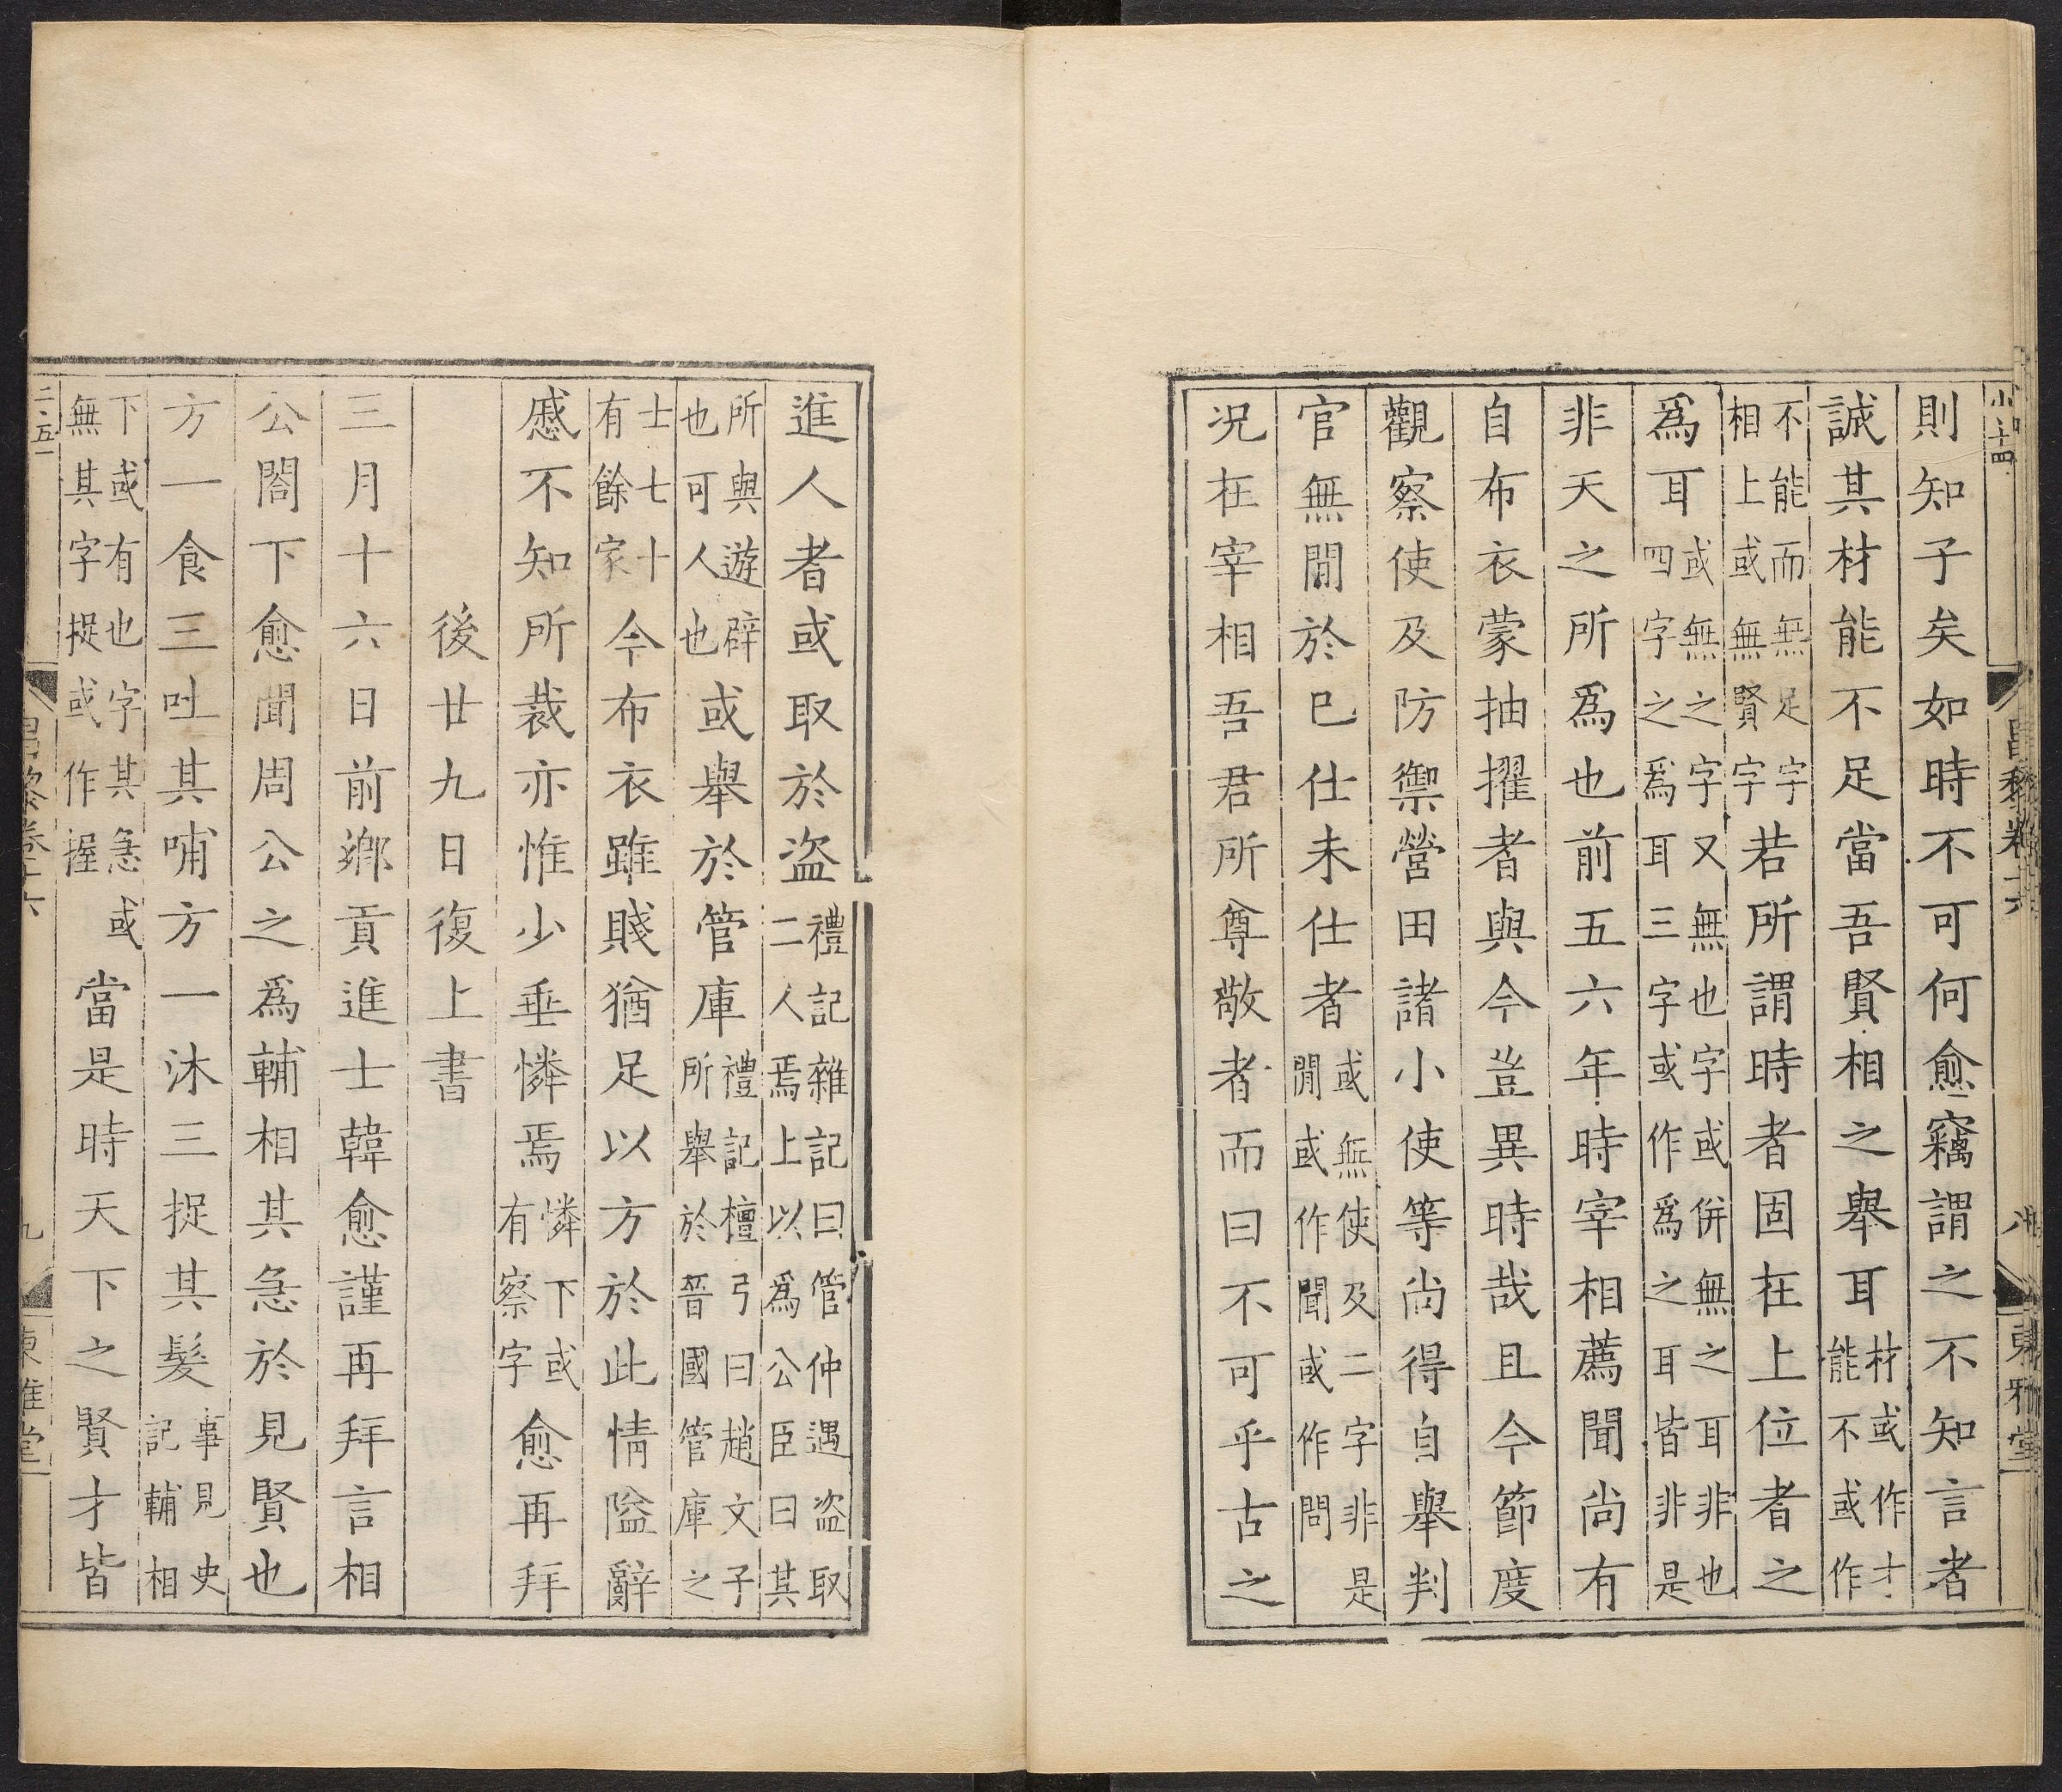 則知子矣如時不可何愈竊謂之不知言者
誠其材能不足當吾賢相之舉耳材或作才能不或作
不能而無足字相上或無賢字若所謂時者固在上位者之
爲耳或無之字又無也字或併無之耳非也四字之爲耳三字或作爲之耳皆非是
非天之所爲也前五六年時宰相薦聞尚有
自布衣蒙抽擢者與今豈異時哉且今節度
觀察使及防禦營田諸小使等尚得自舉判
官無閒於已仕未仕者或無使及二字非是閒或作聞或作問
况在宰相吾君所尊敬者而曰不可乎古之
進人者或取於盜禮記雜記曰管仲遇盜取二人焉上以爲公臣曰其
所與遊辟也可人也或舉於管庫禮記檀弓曰趙文子所舉於晉國管庫之
士七十有餘家今布衣雖賤猶足以方於此情隘辭
慼不知所裁亦惟少垂憐焉憐下或有察字愈再拜
後廿九日復上書
三月十六日前鄉貢進士韓愈謹再拜言相
公閤下愈聞周公之爲輔相其急於見賢也
方一食三吐其哺方一沐三捉其髮事見史記輔相
下或有也字其急或無其字捉或作握當是時天下之賢才皆
小四
昌黎卷十六
八
東雅堂
二五一
昌黎卷十六
九
東雅堂